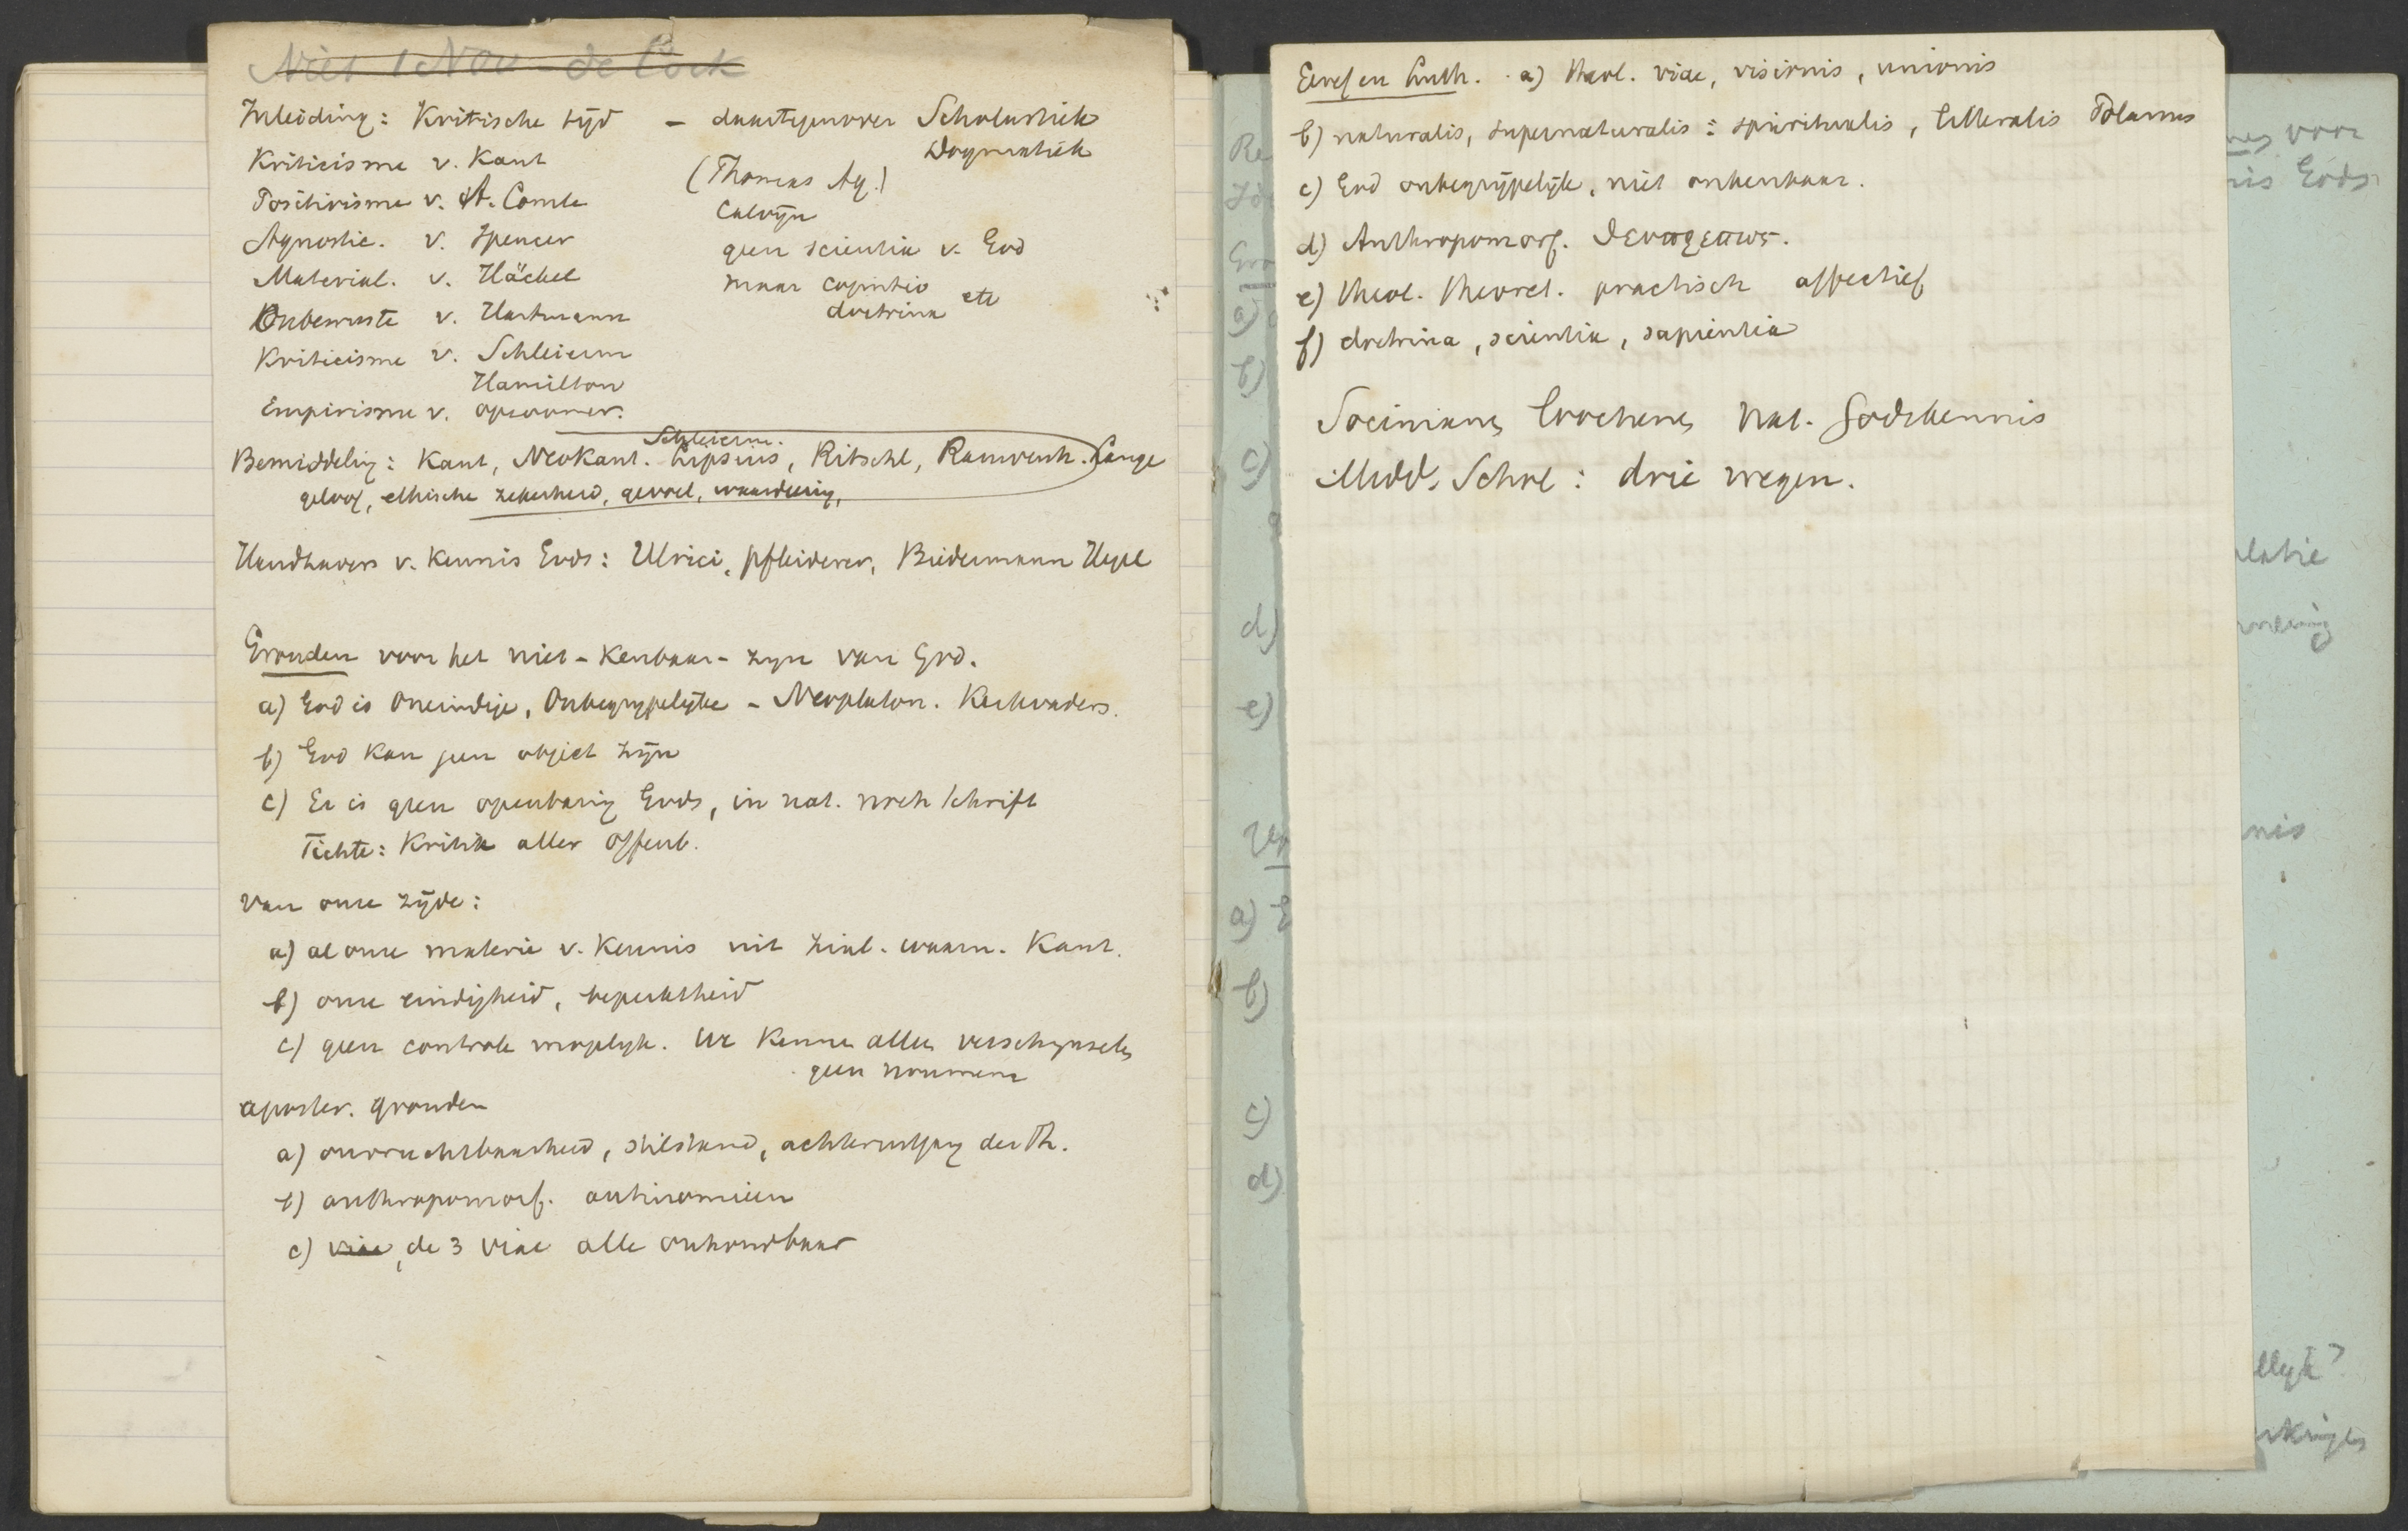 Niet 1 Nov - de Cock
Inleiding: Kritische tijd - daartegenover Scholastiek
Dogmatiek
Kriticisme v. Kant
(Thomas Aq.)
Positivisme v. A. Comte
Calvijn
Agnostic. v. Spencer
geen scientia v. God
Material. v. Häckel
maar cognitio
doctrina etc
Onbewuste v. Hartmann
Kriticisme v. Schleierm
Hamilton
Empirisme v. Opzoomer.
Schleierm.
Bemiddeling: Kant, NeoKant. Lipsius, Ritschl, Rauwenh. Lange
geloof, ethische zekerheid, gevoel, waardeering,
Handhavers v. Kennis Gods: Ulrici, Pfleiderer, Biedermann Hegel
Gronden voor het niet-Kenbaar-zijn van God.
a) God is Oneindige, Onbegrijpelijke - Neoplaton. Kerkvaders.
b) God kan geen object zijn
c) Er is geen openbaring Gods, in nat. noch Schrift
Fichte: Kritik aller Offenb.
Van onze zijde:
a) al onze materie v. Kennis uit zinl. waarn. Kant.
b) onze eindigheid, beperktheid
c) geen controle mogelijk. We Kennen alleen verschijnselen
geen noumena
aposter. gronden
a) onvruchtbaarheid, stilstand, achteruitgang der Th.
b) anthropomorf. antinomieen
c) viae, de 3 viae alle onhoudbaar
Geref en Luth. a) theol. viae, visionis, unionis
b) naturalis, supernaturalis: spiritualis, litteralis Polanus
c) God onbegrijpelijk, niet onkenbaar.
d) Anthropomorf. θεοπρεπως.
e) theol. theoret. practisch affectief
f) doctrina, scientia, sapientia
Socinianen loochenen Nat. Godskennis
Midd. Schol: drie wegen.
Re
a)
b)
c)
d)
e)
a)
b)
c)
d)
voor
Gods
nis